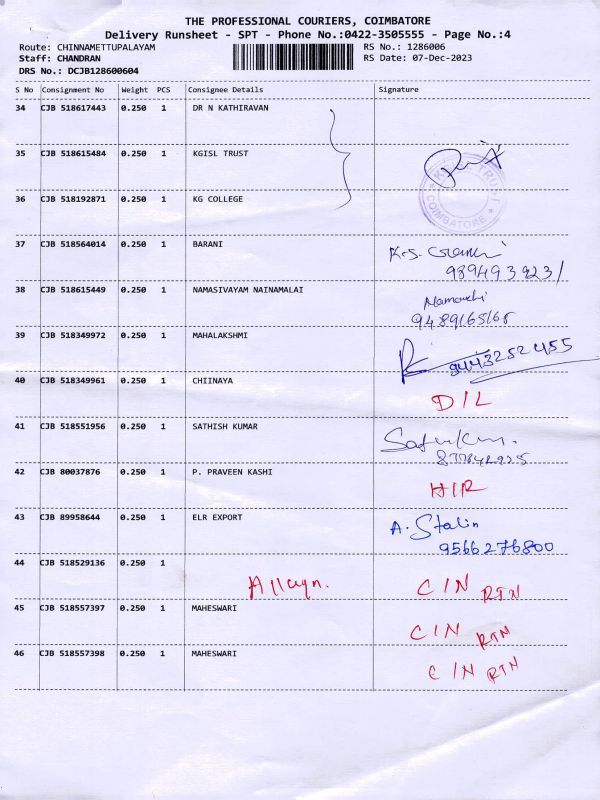 THE PROFESSIONAL COURIERS, COIMBATORE
Delivery Runsheet - SPT - Phone No.:0422-3505555 - Page No.:4
Route: CHINNAMETTUPALAYAM RS No.: 1286006
Staff: CHANDRAN RS Date: 07-Dec-2023
DRS No.: DCJB128600604
S No Consignment No Weight PCS Consignee Details Signature
34 CJB 518617443 0.250 1 DR N KATHIRAVAN
35 CJB 518615484 0.250 1 KGISL TRUST
TRUST
COIMBATORE
36 CJB 518192871 0.250 1 KG COLLEGE
37 CJB 518564014 0.250 1 BARANI
K.S.
38 CJB 518615449 0.250 1 NAMASIVAYAM NAINAMALAI
9489165168
39 CJB 518349972 0.250 1 MAHALAKSHMI
9443252455
40 CJB 518349961 0.250 1 CHIINAYA
D/L
41 CJB 518551956 0.250 1 SATHISH KUMAR
42 CJB 80037876 0.250 1 P. PRAVEEN KASHI
H/R
43 CJB 89958644 0.250 1 ELR EXPORT
A. Stalin
9566276800
44 CJB 518529136 0.250 1
C/N RTN
45 CJB 518557397 0.250 1 MAHESWARI
C/N RTN
46 CJB 518557398 0.250 1 MAHESWARI
C/N RTN